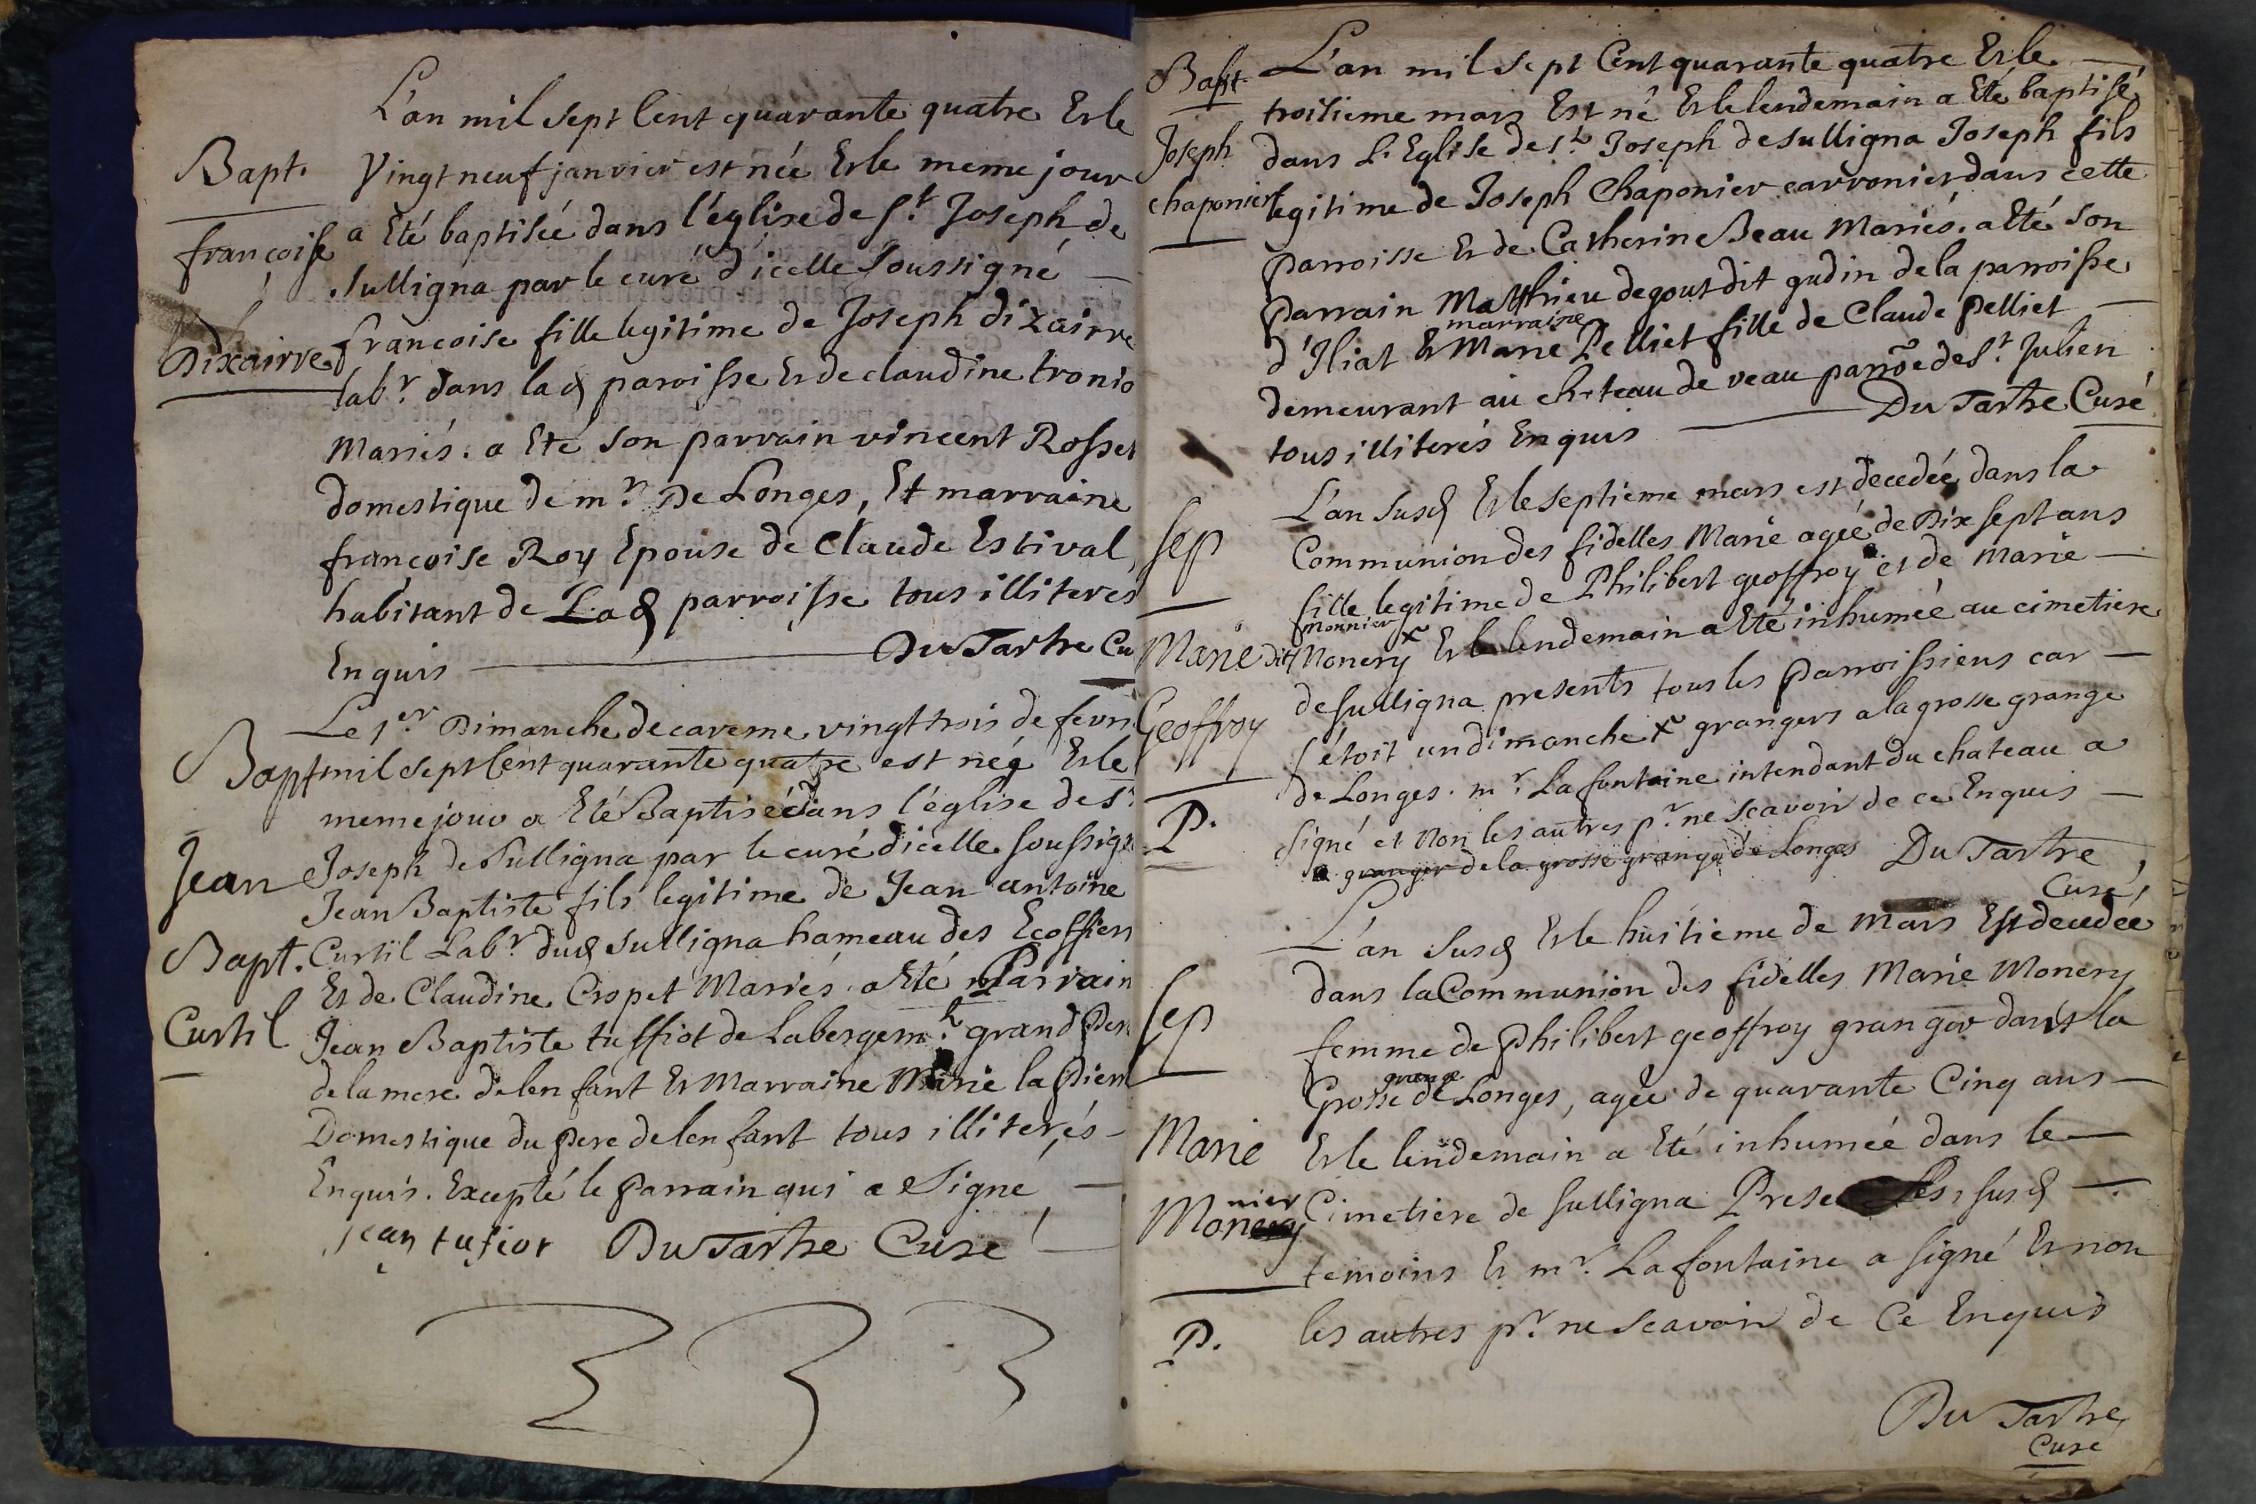 L'an mil sept Cent quarante quatre Et le
Bapt. Vingt neuf janvier est née Et le meme jour
françoise a Eté baptisée dans l'église de St. Joseph de
Sulligna par le curé d'icelle Soussigné
Dixairre francoise fille legitime de Joseph dizairre
labr. dans lad parroisse Et de claudine tronio
Mariés. a Eté Son parrain vincent Rosset
domestique de mr. De Longes, Et marraine
françoise Roy Epouse de Claude Estival
habitant de Lad parroisse tous illiterés
Enquis Du Tartre Cu
Le 1er Dimanche de careme vingt trois de fevri
Bapt mil sept Cent quarante quatre est né Et le
meme jour a Eté Baptisé dans l'église de St.
Jean Joseph de Sulligna par le curé dicelle soussig
Jean Baptiste fils legitime de Jean antoine
Bapt. Curtil Labr. dud Sulligna hameau des Ecoffiers
Et de Claudine Cropet Mariés. a Eté Parrain
Curtil Jean Baptiste tuffiot de Labergemt. grand Pere
de la mere de lenfant Et Marraine Marie la Pierr
Domestique du Pere de lenfant tous illiterés
Enquis. Excepté le Parrain qui a Signé
jean tufiot Du Tartre Curé
Bapt L'an mil Sept Cent quarante quatre Et le
troisieme mars Est né Et le lendemain a Eté baptisé
Joseph dans L'Eglise de St. Joseph de Sulligna Joseph fils
chaponier legitime de Joseph Chaponier carronier dans cette
parroisse Et de Catherine Beau Mariés. a Eté Son
Parrain Matthieu degout dit gudin de la parroisse
marraine
d'Iliat Et Marie Pelliet fille de Claude Pelliet
demeurant au chateau de veau parroe de St. Julien
tous illiterés Enquis Du Tartre Curé
L'an Susd Et le Septieme mars est decedée dans la
Sep Communion des fidelles Marie agée de Dix sept ans
fille legitime de Philibert geoffroy et de Marie
monnier
Marie dit Monery x Et le lendemain a Eté inhumée au cimetiere
de Sulligna presents tous les Parroissiens car
Geoffroy s'étoit un dimanche x grangers a la grosse grange
de Longes. mr. La fontaine intendant du chateau a
P. signé et Non les autres pr. ne scavoir de ce Enquis
granger de la grosse grange de Longes Du Tartre
Curé
L'an Susd Et le huitieme de Mars Est decedée
Sep dans la Communion des fidelles Marie Monery
femme de Philibert geoffroy granger dans la
grange
Grosse de Longes, agée de quarante Cinq ans
Marie Et le lendemain a Eté inhumée dans le
nier
Monery Cimetiere de Sulligna Prese les susd
temoins Et mr. La fontaine a signé Et non
P. les autres pr. ne scavoir de Ce Enquis
Du Tartre
Curé